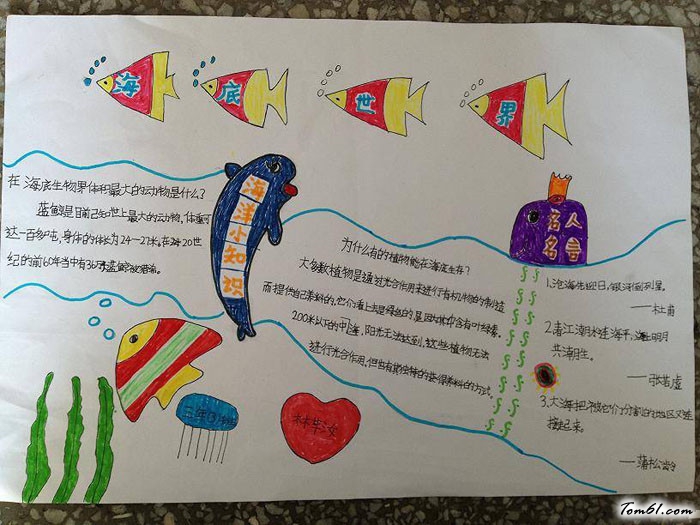 海底世界
在海底生物界体积最大的动物是什么?
蓝鲸是目前已知世上最大的动物,体重可
达一百多吨,身体的体长为24—27米。在20世
纪的前60年当中有36万头蓝鲸被捕
海洋小知识
为什么有的植物能在海底生存?
大多数植物是通过光合作用来进行有机物质的制造
而提供自己养料的,它们看上去是绿色的是因为其中含有叶绿素。
200米以下的中,阳光无法达到,这些植物无法
进行光合作用,但也有其独特的获得养料的方式
名人名言
1.沧海先迎日,银河倒列星。
——杜甫
2.春江潮水连海平,海上明月
共潮生。
——张若虚
3.大海把被它们分割的地区又连
接起来。
——蒲松龄
三年
林华汝
Tom61.com